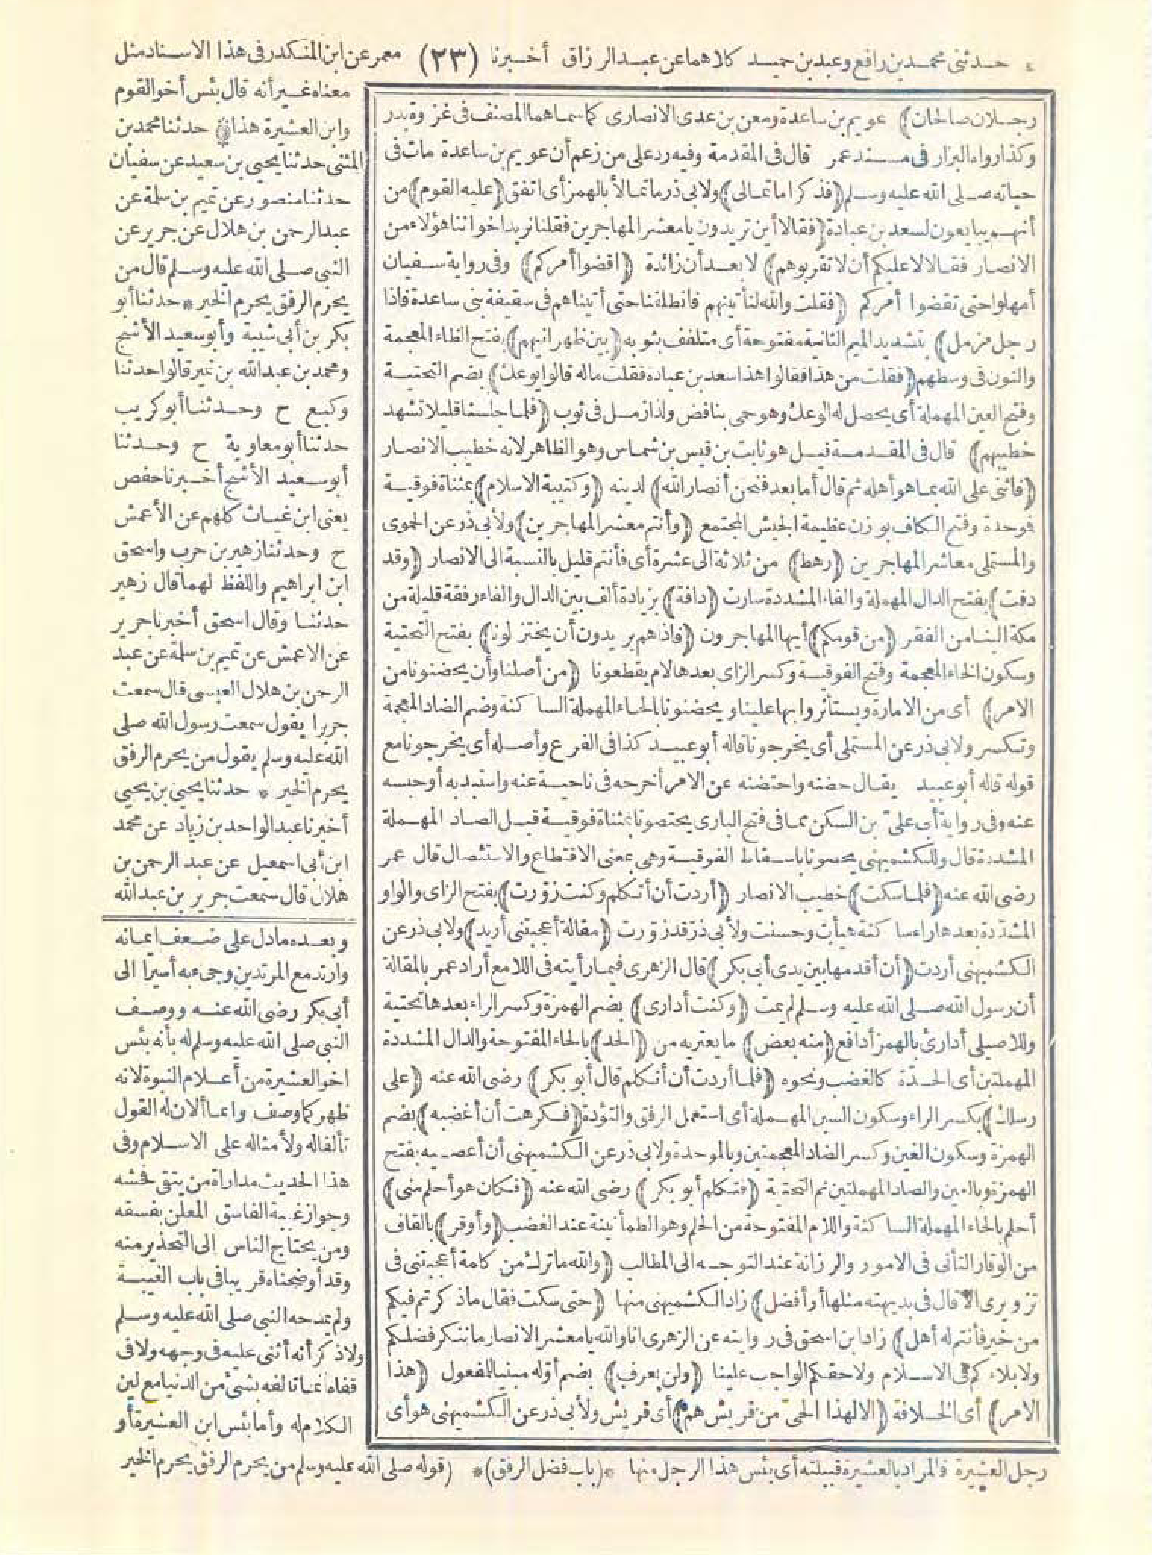 حدثنى محمد بن رافع وعبد بن حميد كلاهما عن عبد الرزاق أخبرنا (٢٣) معمر عن ابن المنكدر فى هذا الاسناد مثل
معناه غير أنه قال بئس أخو القوم
وابن العشيرة هذا حدثنا محمد بن
المثنى حدثنا يحيى بن سعيد عن سفيان
حدثنا منصور عن تميم بن سلمة عن
عبد الرحمن بن هلال عن جرير عن
النبى صلى الله عليه وسلم قال من
يحرم الرفق يحرم الخير * حدثنا أبو
بكر بن أبى شيبة وأبو سعيد الأشج
ومحمد بن عبد الله بن نمير قالوا حدثنا
وكيع ح وحدثنا أبو كريب
حدثنا أبو معاوية ح وحدثنا
أبو سعيد الأشج أخبرنا حفص
يعنى ابن غياث كلهم عن الأعمش
ح وحدثنا زهير بن حرب واسحق
ابن ابراهيم واللفظ لهما قال زهير
حدثنا وقال اسحق أخبرنا جرير
عن الاعمش عن تميم بن سلمة عن عبد
الرحمن بن هلال العبسى قال سمعت
جريرا يقول سمعت رسول الله صلى
الله عليه وسلم يقول من يحرم الرفق
يحرم الخير * حدثنا يحيى بن يحيى
أخبرنا عبد الواحد بن زياد عن محمد
ابن أبى اسمعيل عن عبد الرحمن بن
هلال قال سمعت جرير بن عبد الله
رجلان صالحان) عويم بن ساعدة ومعن بن عدى الانصارى كما سماهما المصنف فى غزوة بدر
وكذا رواه البزار فى مسند عمر قال فى المقدمة وفيه رد على من زعم أن عويم بن ساعدة مات فى
حياته صلى الله عليه وسلم (فذكرا ما تمالى) ولابى ذر ما تمالأ بالهمز أى اتفق (عليه القوم) من
أنهم يبايعون لسعد بن عبادة (فقالا أين تريدون يا معشر المهاجرين فقلنا نريد اخواننا هؤلاء من
الانصار فقالا لا عليكم أن لا تقربوهم) لا بعد أن زائدة (اقضوا أمركم) وفى رواية سفيان
أمهلوا حتى تقضوا أمركم (فقلت والله لنأتينهم فانطلقنا حتى أتيناهم فى سقيفة بنى ساعدة فاذا
رجل مزمل) بتشديد الميم الثانية مفتوحة أى متلفف بثوبه (بين ظهرانيهم) بفتح الظاء المعجمة
والنون فى وسطهم (فقلت من هذا فقالوا هذا سعد بن عبادة فقلت ماله قالوا يوعك) بضم التحتية
وفتح العين المهملة أى يحصل له الوعك وهو حمى بنافض ولذا زمل فى ثوب (فلما جلسنا قليلا تشهد
خطيبهم) قال فى المقدمة قيل هو ثابت بن قيس بن شماس وهو الظاهر لانه خطيب الانصار
(فأثنى على الله بما هو أهله ثم قال أما بعد فنحن أنصار الله) لدينه (وكتيبة الاسلام) بمثناة فوقية
فوحدة وفتح الكاف بوزن عظيمة الجيش المجتمع (وأنتم معشر المهاجرين) ولأبى ذر عن الحموى
والمستملى معاشر المهاجرين (رهط) من ثلاثة الى عشرة أى فأنتم قليل بالنسبة الى الانصار (وقد
دفت) بفتح الدال المهملة والفاء المشددة سارت (دافة) بزيادة ألف بين الدال والفاء رفقة قليلة من
مكة الينا من الفقر (من قومكم) أيها المهاجرون (فاذا هم يريدون أن يختزلونا) بفتح التحتية
وسكون الخاء المعجمة وفتح الفوقية وكسر الزاى بعدها لام يقطعونا (من أصلنا وأن يحضنونا من
الامر) أى من الامارة ويستأثروا بها علينا ويحضنونا بالحاء المهملة الساكنة وضم الضاد المعجمة
وتكسر ولابى ذر عن المستملى أى يخرجونا قاله أبو عبيد كذا فى الفرع وأصله أى يخرجونا مع
قوله قاله أبو عبيد يقال حضنه واحتضنه عن الامر أخرجه فى ناحية عنه واستبد به أو حبسه
عنه وفى رواية أبى على بن السكن مما فى فتح البارى يحتصونا بمثناة فوقية قبل الصاد المهملة
المشددة قال وللكشميهنى يحصونا باسقاط الفوقية وهى بمعنى الاقتطاع والاستئصال قال عمر
رضى الله عنه (فلما سكت) خطيب الانصار (أردت أن أتكلم وكنت زورت) بفتح الزاى والواو
المشددة بعدها راء ساكنة هيأت وحسنت ولأبى ذر قد زورت (مقالة أعجبتنى أريد) ولابى ذر عن
الكشميهنى أردت (أن أقدمها بين يدى أبى بكر) قال الزهرى فيما رأيته فى اللامع أراد عمر بالمقالة
أن رسول الله صلى الله عليه وسلم لم يمت (وكنت أدارى) بضم الهمزة وكسر الراء بعدها تحتية
وللاصيلى أدارئ بالهمز أدافع (منه بعض) ما يعتريه من (الحد) بالحاء المفتوحة والدال المشددة
المهملتين أى الحدة كالغضب ونحوه (فلما أردت أن أتكلم قال أبو بكر) رضى الله عنه (على
رسلك) بكسر الراء وسكون السين المهملة أى استعمل الرفق والتؤدة (فكرهت أن أغضبه) بضم
الهمزة وسكون الغين وكسر الضاد المعجمتين وبالموحدة ولابى ذر عن الكشميهنى أن أعصيه بفتح
الهمزة وبالعين والصاد المهملتين ثم التحتية (فتكلم أبو بكر) رضى الله عنه (فكان هو أحلم منى)
أحلم بالحاء المهملة الساكنة واللام المفتوحة من الحلم وهو الطمأنينة عند الغضب (وأوقر) بالقاف
من الوقار التأنى فى الامور والرزانة عند التوجه الى المطالب (والله ما ترك من كلمة أعجبتنى فى
تزويرى الا قال فى بديهته مثلها أو أفضل) زاد الكشميهنى منها (حتى سكت فقال ما ذكرتم فيكم
من خير فأنتم له أهل) زاد ابن اسحق فى روايته عن الزهرى انا والله يا معشر الانصار ما ننكر فضلكم
ولا بلاءكم فى الاسلام ولا حقكم الواجب علينا (ولن يعرف) بضم أوله مبنيا للمفعول (هذا
الامر) أى الخلافة (الا لهذا الحى من قريش هم) أى قريش ولأبى ذر عن الكشميهنى هو أى
وبعده ما دل على ضعف ايمانه
وارتد مع المرتدين وجىء به أسيرا الى
أبى بكر رضى الله عنه ووصف
النبى صلى الله عليه وسلم له بأنه بئس
اخو العشيرة من أعلام النبوة لانه
ظهر كما وصف وانما ألان له القول
تألفا له ولأمثاله على الاسلام وفى
هذا الحديث مداراة من يتقى فحشه
وجواز غيبة الفاسق المعلن بفسقه
ومن يحتاج الناس الى التحذير منه
وقد أوضحناه قريبا فى باب الغيبة
ولم يمدحه النبى صلى الله عليه وسلم
ولا ذكر أنه أثنى عليه فى وجهه ولا فى
قفاه انما تألفه بشىء من الدنيا مع لين
الكلام له وأما بئس ابن العشيرة أو
رجل العشيرة فالمراد بالعشيرة قبيلته أى بئس هذا الرجل منها *(باب فضل الرفق)* (قوله صلى الله عليه وسلم من يحرم الرفق يحرم الخير